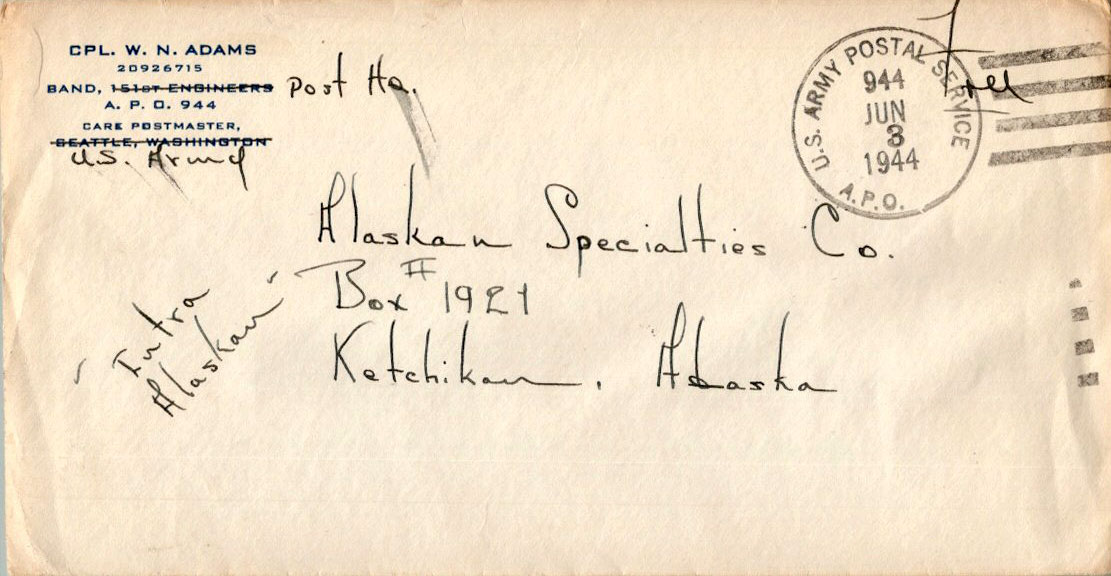 CPL. W. N. ADAMS
20926715
BAND, 151ST ENGINEERS Post Hq.
A. P. O. 944
CARE POSTMASTER,
SEATTLE, WASHINGTON
U.S. Army
U.S. ARMY POSTAL SERVICE
944
JUN
3
1944
A.P.O.
Free
Alaskan Specialties Co.
Box # 1921
Ketchikan, Alaska
"Intra
Alaskan"